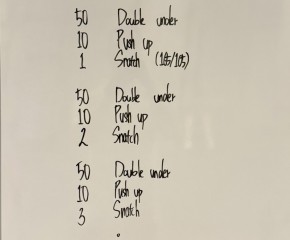 50 Double under
10 Push up
1 Snatch (155/105)
50 Double under
10 Push up
2 Snatch
50 Double under
10 Push up
3 Snatch